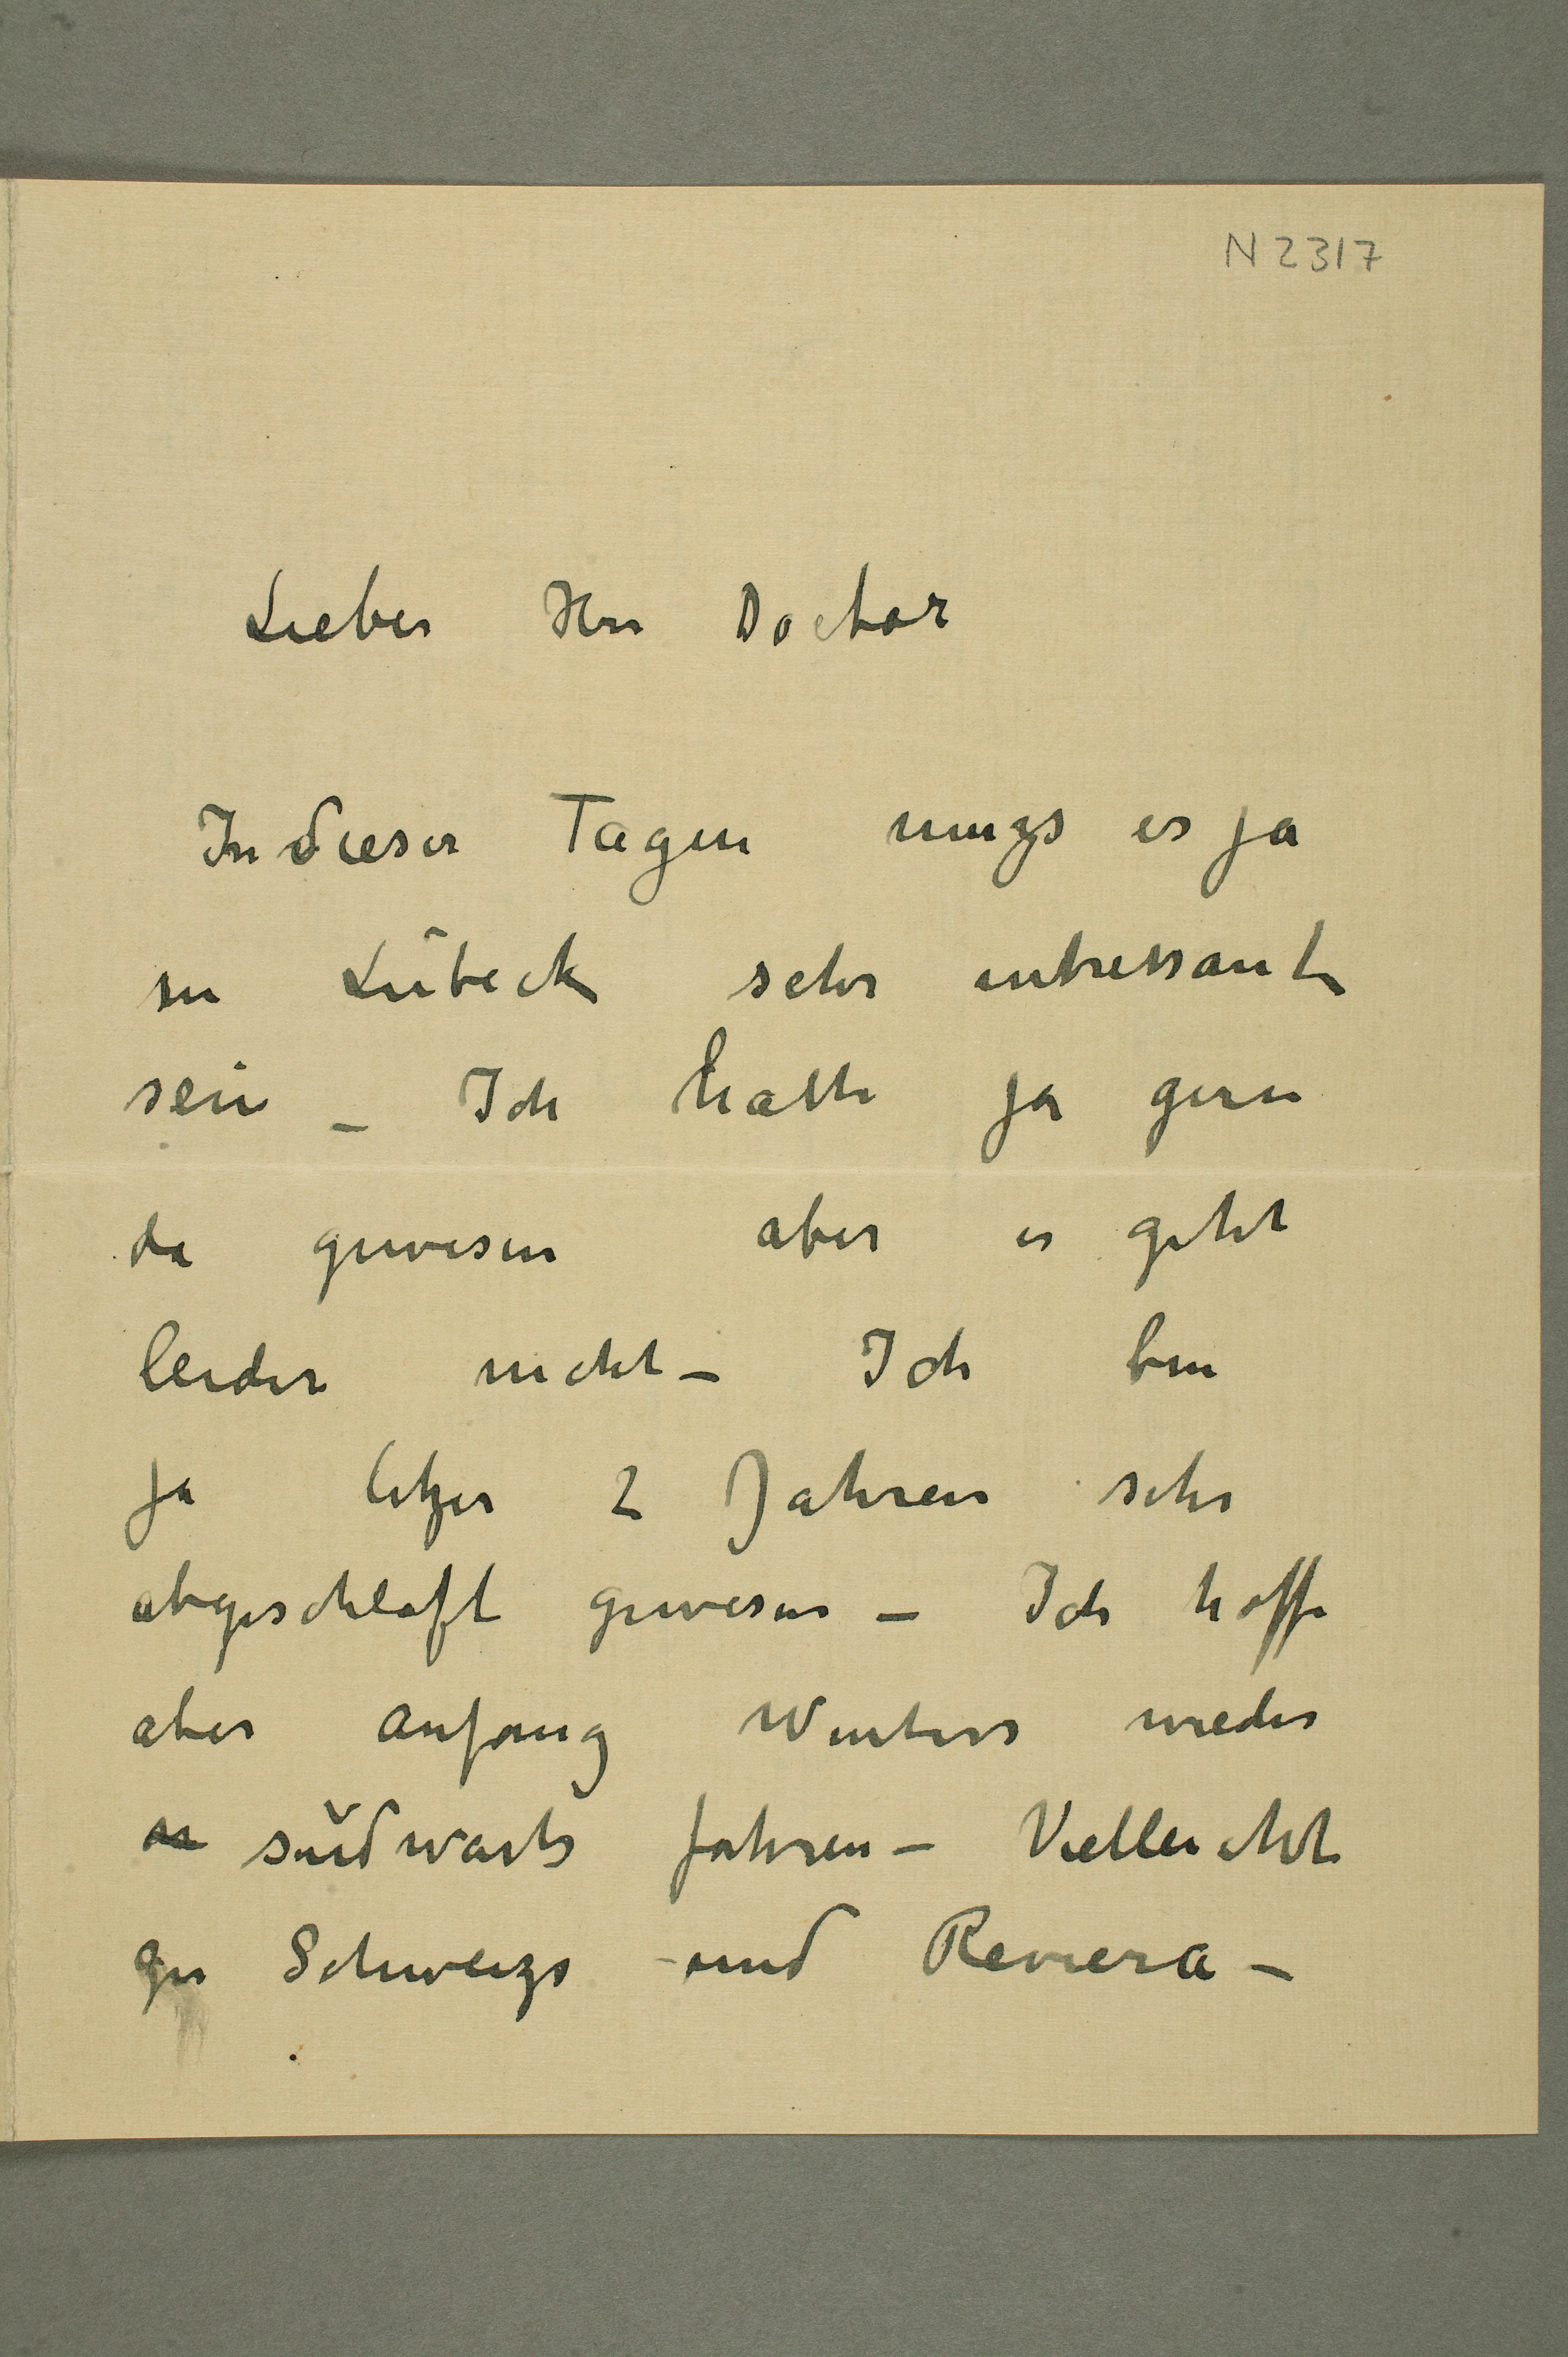 N 2317
Lieber Herr Doctor
In dieser Tagen muszs es ja
in Lübeck sehr intressant
sein – Ich hatte ja gern
da gewesen aber es geht
leider nicht – Ich bin
ja letzer 2 Jahren sehr
abgeschlaft gewesen – Ich hoffe
aber anfang Winters wieder
südwarts fahren – Vielleicht
Schweizs und Reviera –